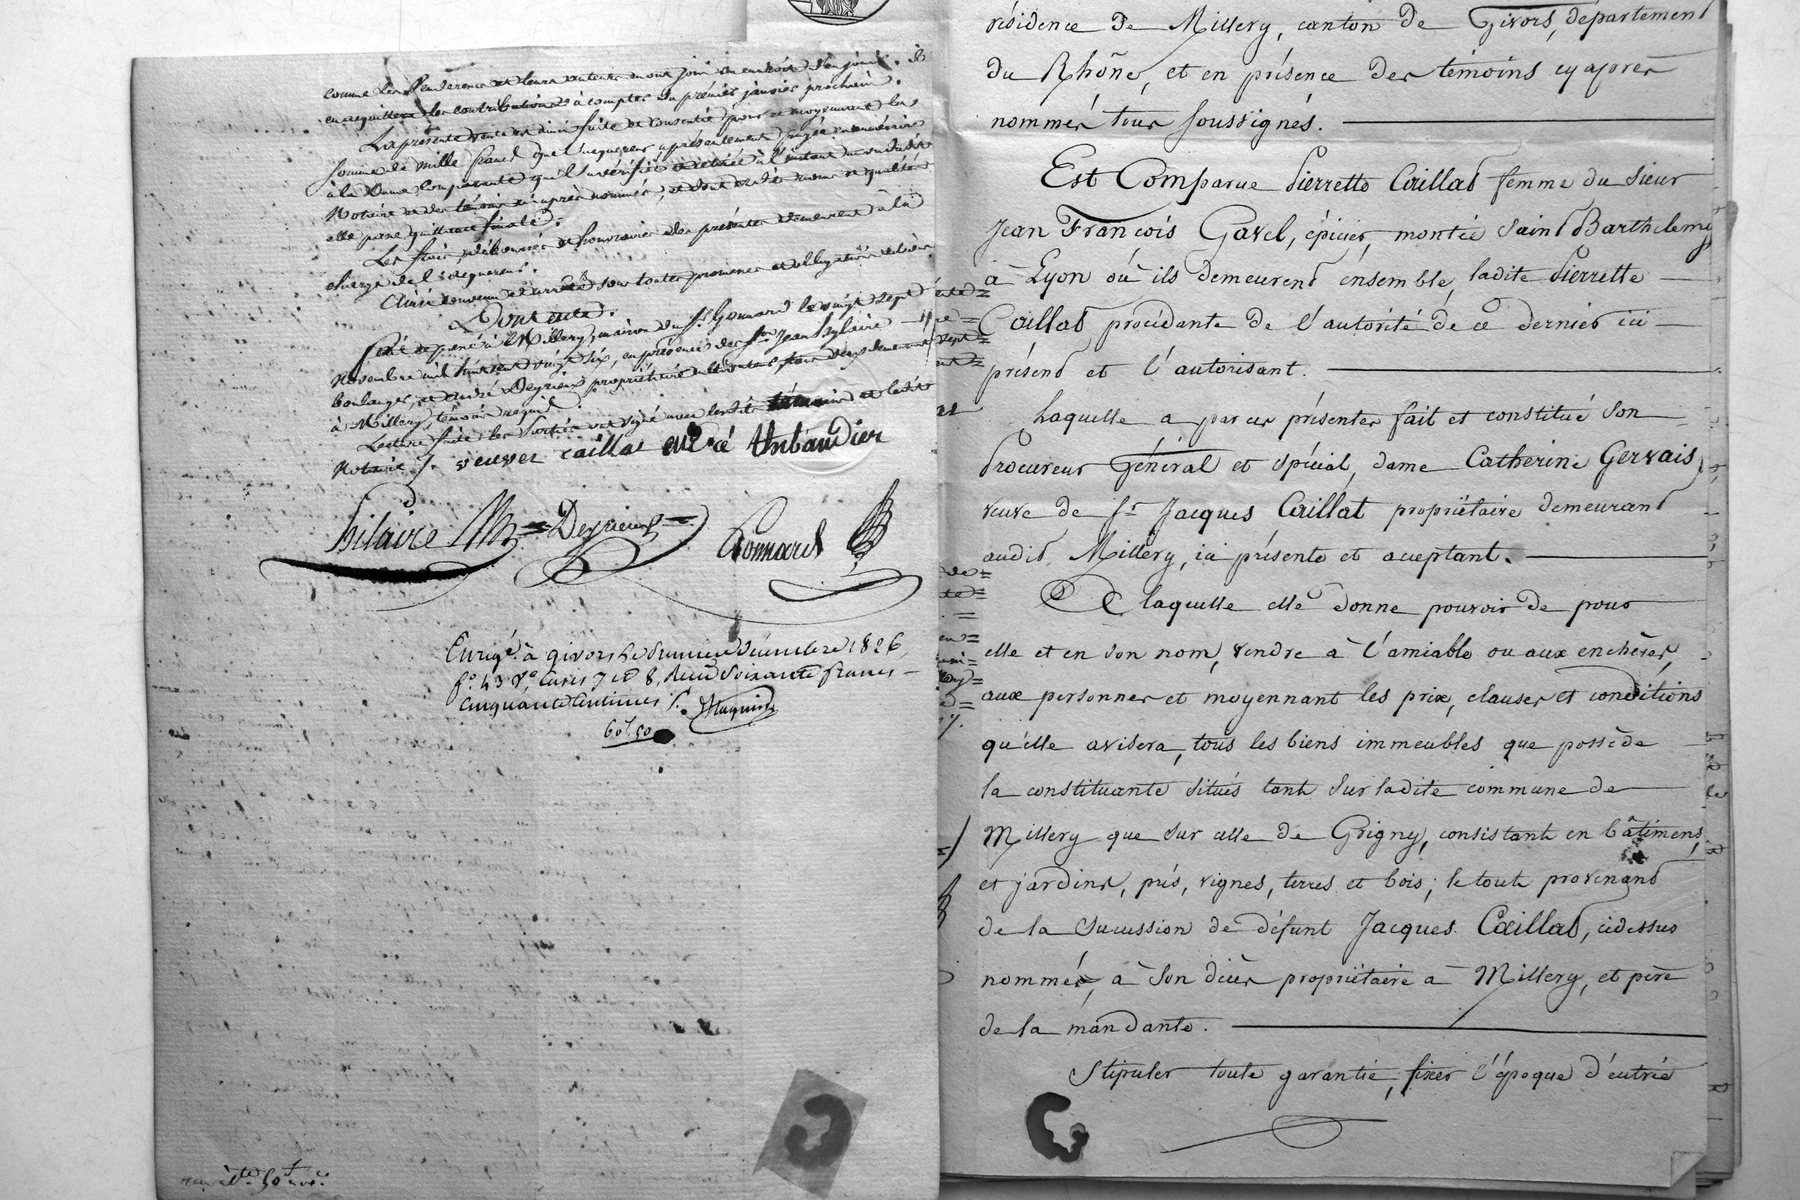 comme les venderesses et leurs auteurs en ont joui ou eu droit d'en jouir. Il
en acquittera les contributions à compter du premier janvier prochain.
La présente vente est ainsi faite et consentie pour et moyennant la
somme de mille francs que l'acquereur a présentement payée en numéraire
à la Dame Comparante qui l'a vérifiée et retirée à l'instant au vu dudit
Notaire et des témoins ci après nommés, et dont en dite qualité
elle passe quittance finale.
Les frais, déboursés et honoraires des présentes demeurent à la
charge de l'acquereur.
Ainsi convenu et arrêté sous toutes promesses et obligations de droit
Dont acte.
Fait et passé à Millery, maison du Sr Gonnard le vingt sept
Novembre mil huit cent vingt six, en présence des Srs Jean hylaire
boulanger, et André Deyrieux propriétaire cultivateur, tous deux demeurant
à Millery, témoins requis.
Lecture faite les parties ont signé avec lesdits témoins et ledit
Notaire /. veuve caillat thibaudier
hilaire Deyrieux Gonnard
Enregé. à givors le Décembre 1826
fo. 43 Vo. Cases 7 et 8, Reçu Soixante francs
cinquante Centimes /.
60f 50
résidence de Millery, canton de Givors, département
du Rhône, et en présence des témoins cy après
nommés tous soussignés.
Est Comparue Pierrette Caillat femme du sieur
Jean François Gavel, épicier, montée Saint Barthelemy
à Lyon où ils demeurent ensemble, ladite Pierrette
Caillat procédante de l'autorité de ce dernier ici
présent et l'autorisant.
Laquelle a par ces présentes fait et constitué son
Procureur général et spécial, dame Catherine Gervais,
veuve de Sr Jacques Caillat propriétaire demeurant
audit Millery, ici présente et acceptant.
A laquelle elle donne pouvoir de pour
elle et en son nom, vendre à l'amiable ou aux enchères,
aux personnes et moyennant les prix, clauses et conditions
qu'elle avisera, tous les biens immeubles que possède
la constituante situés tant sur ladite commune de
Millery que sur celle de Grigny, consistant en bâtimens,
et jardins, prés, vignes, terres et bois; le tout provenant
de la succession de défunt Jacques Caillat, cidessus
nommé, à son décès propriétaire à Millery, et père
de la mandante.
Stipuler toute garantie, fixer l'époque d'entrée